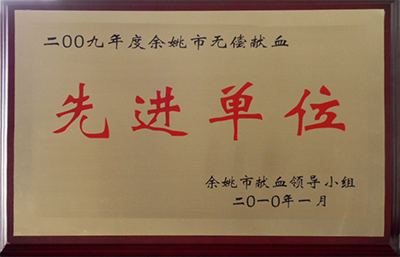 二00九年度余姚市无偿献血
先进单位
余姚市献血领导小组
二0一0年一月